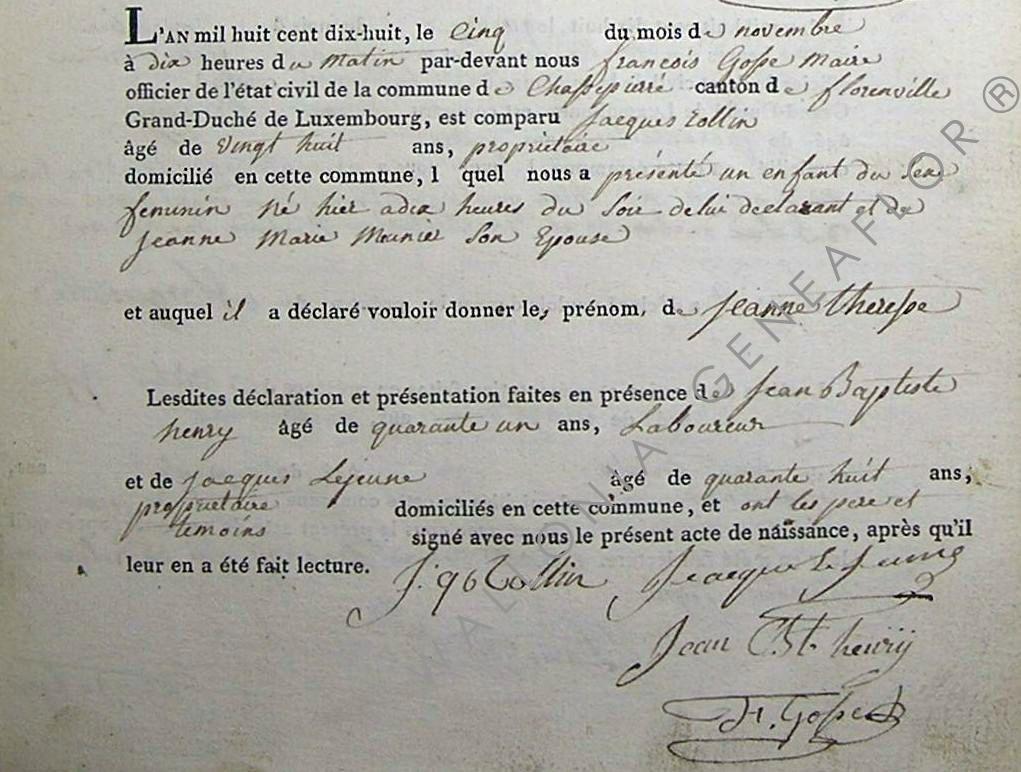 L'AN mil huit cent dix-huit, le Cinq du mois de novembre
à dix heures du matin par-devant nous françois Gosse Maire
officier de l'état civil de la commune de Chassepierre canton de florenville
Grand-Duché de Luxembourg, est comparu Jacques Collin
âgé de Vingt huit ans, proprietaire
domicilié en cette commune, l quel nous a présenté un enfant du Sexe
femunin né hier a dix heures du Soir de lui declarant et de
Jeanne Marie Meunier Son Epouse
et auquel il a déclaré vouloir donner les prénom, de Jeanne theresse
Lesdites déclaration et présentation faites en présence de Jean Baptiste
henry âgé de quarante un ans, Laboureur
et de Jacques Lejeune âgé de quarante huit ans,
proprietaire domiciliés en cette commune, et ont les pere et
temoins signé avec nous le présent acte de naissance, après qu'il
leur en a été fait lecture. J: qe Collin Jacque Le Jeune
Jean Bt. henrÿ
F. Gosse
A LIONA GENEAFOR ®